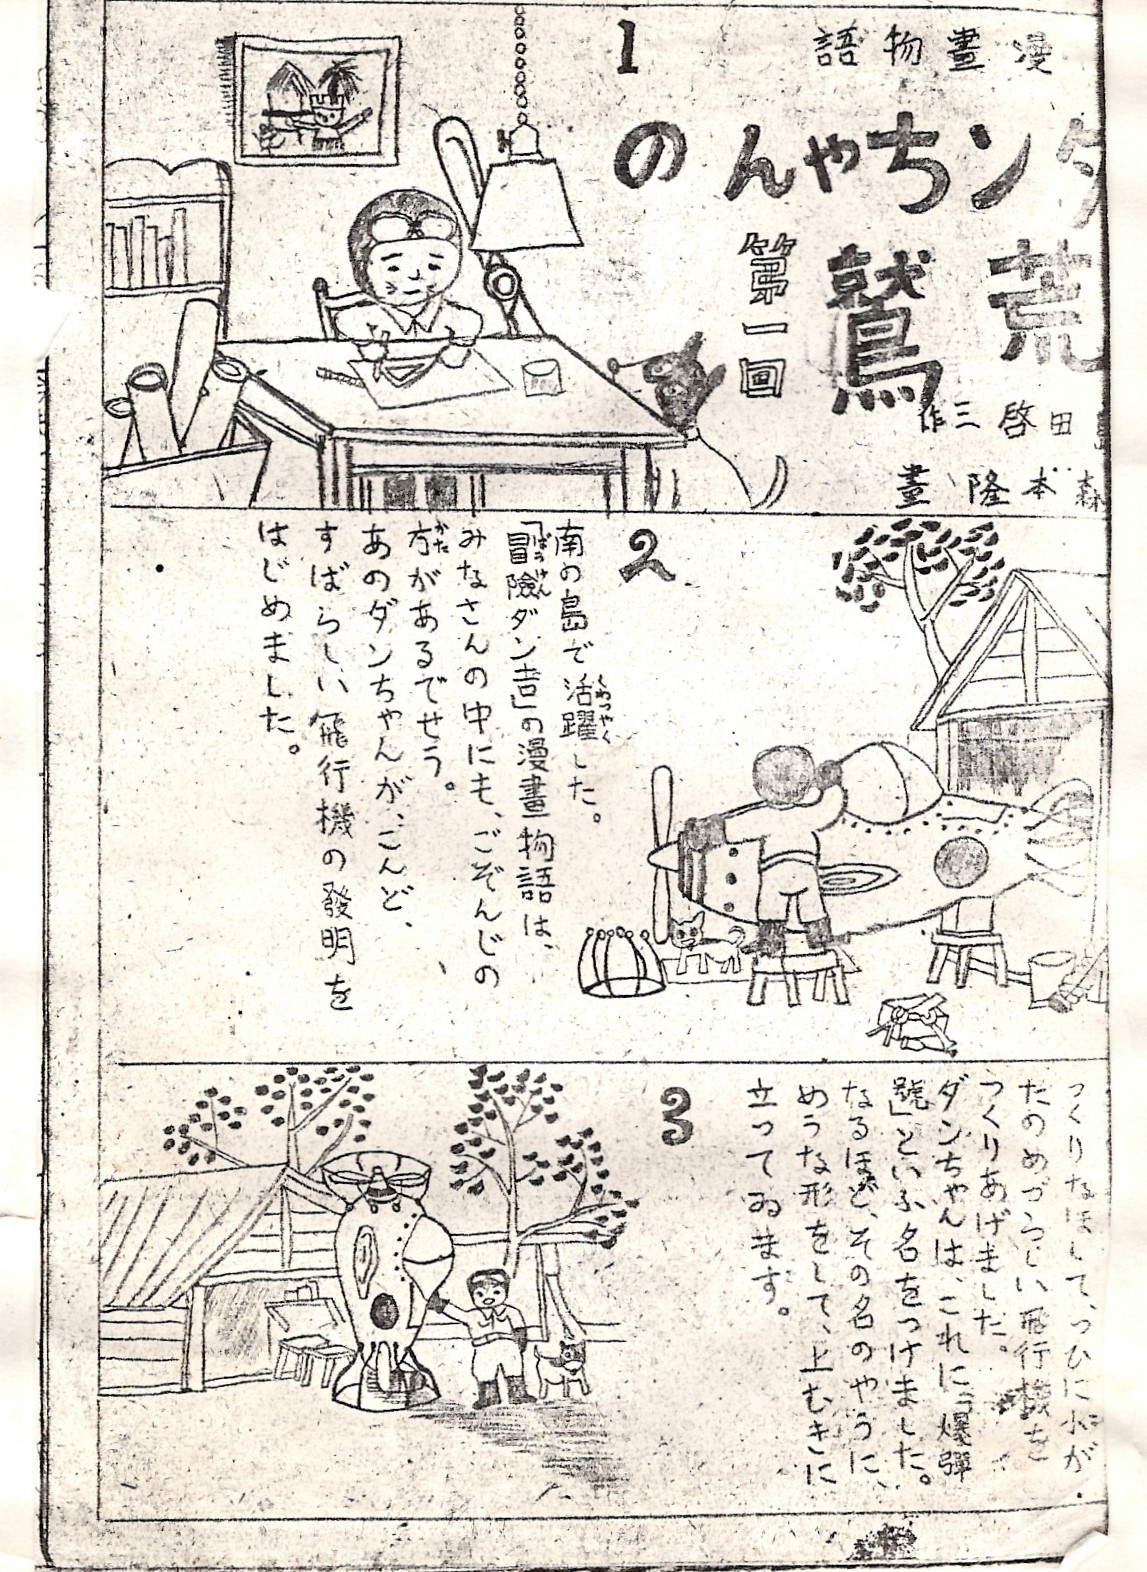 漫畫物語
1
ダンちゃんの
荒鷲
第一回
島田啓三作
森本隆畫
2
南の島で活躍した。
「冒險ダン吉」の漫畫物語は、
みなさんの中にも、ごぞんじの
方があるでせう。
あのダンちゃんが、こんど、
すばらしい飛行機の發明を
はじめました。
3
つくりなほして、つひに小が
たのめづらしい飛行機を
つくりあげました。
ダンちゃんは、これに「爆彈
號」といふ名をつけました。
なるほど、その名のやうに、
めうな形をして、上むきに
立ってゐます。